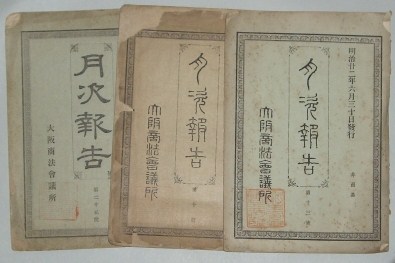 明治廿二年六月三十日發行
月次報告
大阪商法會議所
月次報告
大阪商法會議所
月次報告
大阪商法會議所